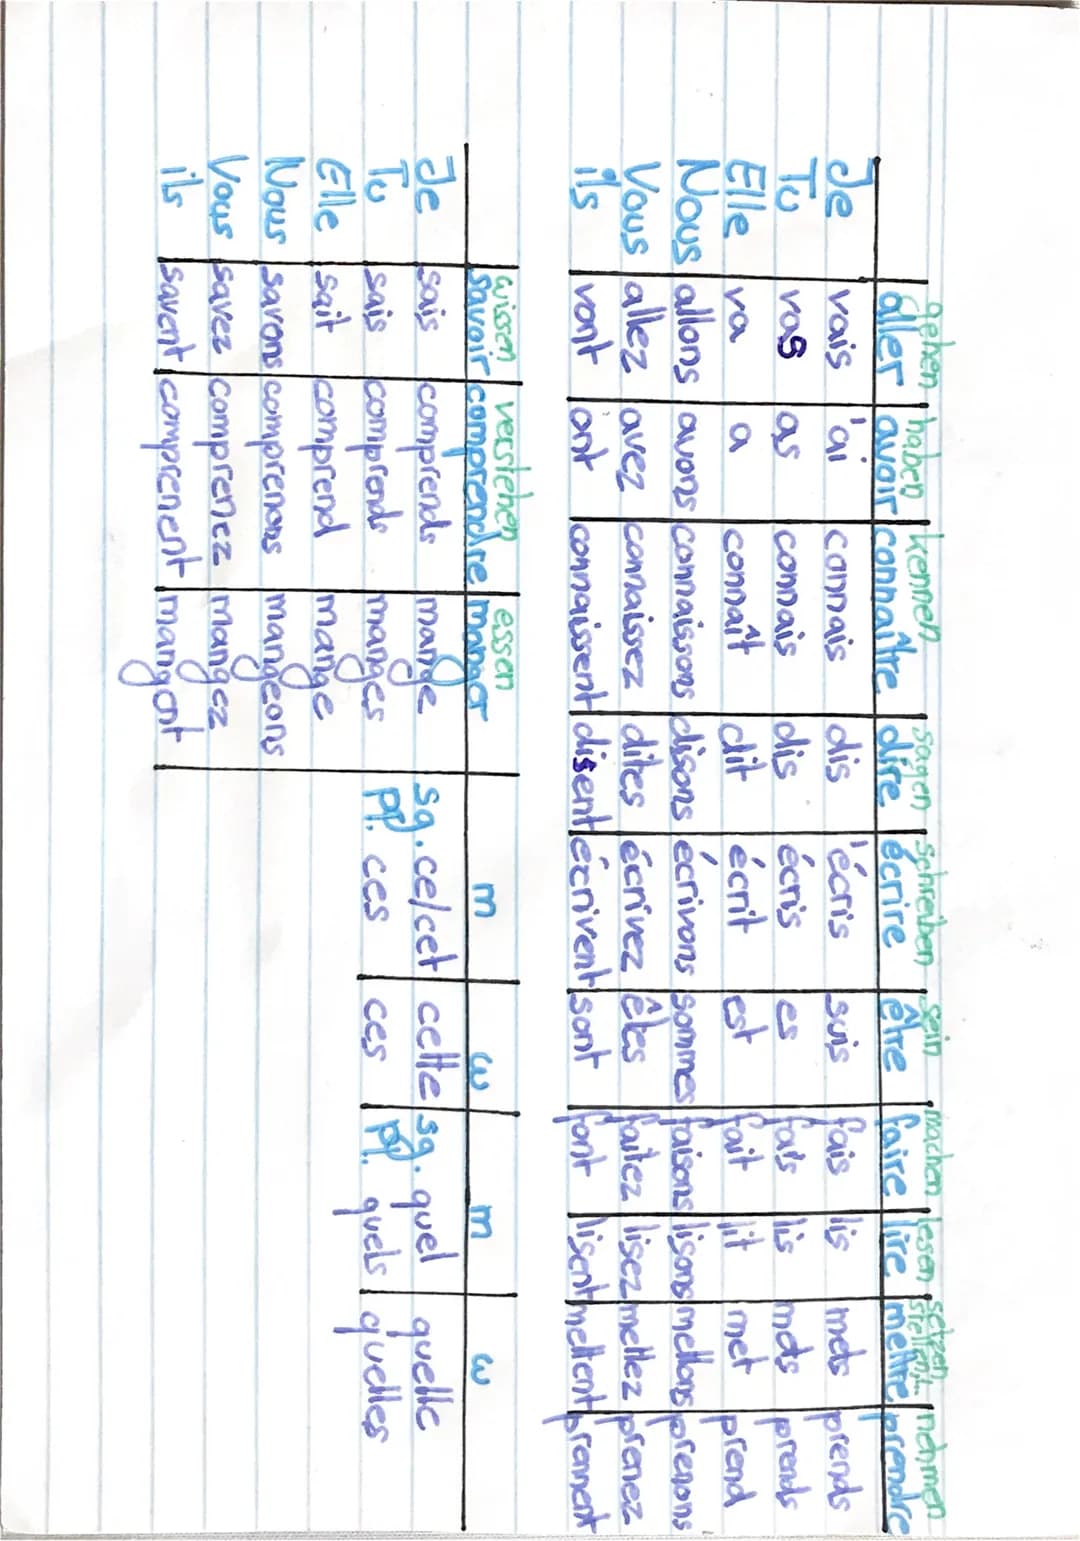 gehen haben kennen sagen schreiben sein machen lesen setzen nehmen
stellen,...
aller avoir connaître dire écrire être faire lire mettre prendre
Je vais 'ai connais dis 'écris suis fais lis mets prends
Tu vas as connais dis écris es fais lis mets prends
Elle va a connaît dit écrit est fait lit met prend
Nous allons avons connaissons disons écrivons sommes faisons lisons mettons prenons
Vous allez avez connaissez dites écrivez êtes faitez lisez mettez prenez
ils vont ont connaissent disent écrivent sont font lisent mettent prennent
wissen verstehen essen
savoir comprendre manger m w m w
Je sais comprends mange sg. ce/cet cette sg. quel quelle
Tu sais comprends manges pl. ces ces pl. quels quelles
Elle sait comprend mange
Nous savons comprenons mangeons
Vous savez comprenez mangez
ils savent comprenent mangent